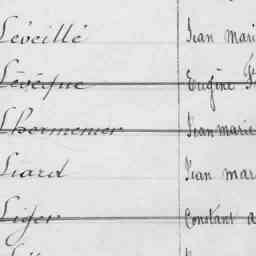 Léveillé Jean mari
Lévêque Eugène F
Lhermenier Jean marie
Liard Jean mar
Liger Constant a